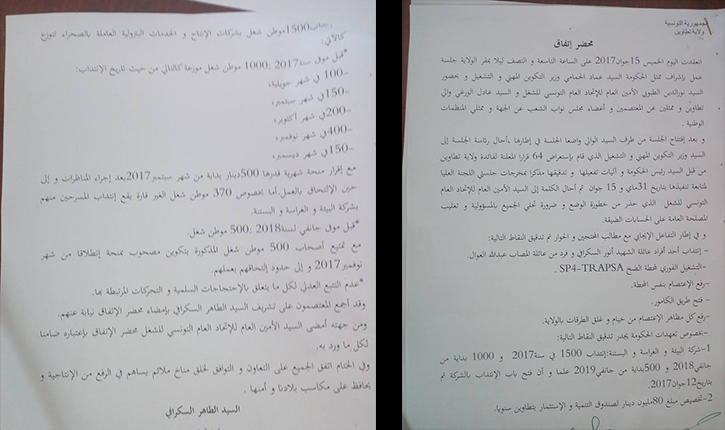 الجمهورية التونسية
ولاية تطاوين
محضر إتفاق
انعقدت اليوم الخميس 15جوان2017 على الساعة التاسعة و النصف ليلا بمقر الولاية جلسة
عمل بإشراف ممثل الحكومة السيد عماد الحمامي وزير التكوين المهني و التشغيل و بحضور
السيد نورالدين الطبوبي الأمين العام للإتحاد العام التونسي للشغل و السيد عادل الورغي والي
تطاوين و ممثلين عن المعتصمين و أعضاء مجلس نواب الشعب عن الجهة و ممثلي المنظمات
الوطنية .
و بعد إفتتاح الجلسة من طرف السيد الوالي واضعا الجلسة في إطارها ،أحال رئاسة الجلسة إلى
السيد وزير التكوين المهني و التشغيل الذي قام بإستعراض 64 قرارا المعلنة لفائدة ولاية تطاوين
من قبل السيد رئيس الحكومة و آليات تفعيلها و تدقيقها مذكرا بمخرجات جلستي اللجنة العليا
لمتابعة تنفيذها بتاريخ 31ماي و 15 جوان ثم أحال الكلمة إلى السيد الأمين العام للإتحاد العام
التونسي للشغل الذي حذر من خطورة الوضع و ضرورة تحلي الجميع بالمسؤولية و تغليب
المصلحة العامة على الحسابات الضيقة.
و في إطار التفاعل الإيجابي مع مطالب المحتجين و الحوار تم تدقيق النقاط التالية:
- إنتداب أحد أفراد عائلة الشهيد أنور السكرافي و فرد من عائلة المصاب عبدالله العوال.
-التشغيل الفوري لمحطة الضخ SP4-TRAPSA .
-رفع الإعتصام بنفس المحطة.
- فتح طريق الكامور.
-رفع كل مظاهر الإعتصام من خيام و غلق الطرقات بالولاية.
-بخصوص تعهدات الحكومة يجدر تدقيق النقاط التالية:
1-شركة البيئة و الغراسة و البستنة:إنتداب 1500 في سنة2017 و 1000 بداية من
جانفي2018 و 500بداية من جانفي2019 علما و أن فتح باب الإنتداب بالشركة تم
بتاريخ12جوان2017.
2-تخصيص مبلغ 80مليون دينار لصندوق التنمية و الإستثمار بتطاوين سنويا.
1500موطن شغل بشركات الإنتاج و الخدمات البترولية العاملة بالصحراء تتوزع
كالآتي:
*قبل موفى سنة2017 :1000 موطن شغل موزعة كالتالي من حيث تاريخ الإنتداب:
-100 في شهر جويلية،
-150في شهر سبتمبر،
-200في شهر أكتوبر،
-400في شهر نوفمبر،
-150في شهر ديسمبر،
مع إقرار منحة شهرية قدرها 500دينار بداية من شهر سبتمبر2017بعد إجراء المناظرات و إلى
حين الإلتحاق بالعمل.أما بخصوص 370 موطن شغل الغير قارة يقع إنتداب المسرحين منهم
بشركة البيئة و الغراسة و البستنة.
*قبل موفى جانفي لسنة2018 :500 موطن شغل.
مع تمتيع أصحاب 500 موطن شغل المذكورة بتكوين مصحوب بمنحة إنطلاقا من شهر
نوفمبر2017 و إلى حدود إلتحاقهم بعملهم.
-عدم التتبع العدلي لكل ما يتعلق بالإحتجاجات السلمية و التحركات المرتبطة بها.
وقد أجمع المعتصمون على تشريف السيد الطاهر السكرافي بإمضاء محضر الإتفاق نيابة عنهم.
ومن جهته أمضى السيد الأمين العام للإتحاد العام التونسي للشغل محضر الإتفاق بإعتباره ضامنا
لكل ما ورد به.
وفي الختام اتفق الجميع على التعاون و التوافق لخلق مناخ ملائم يساهم في الرفع من الإنتاجية و
يحافظ على مكاسب بلادنا و أمنها .
السيد الطاهر السكرافي